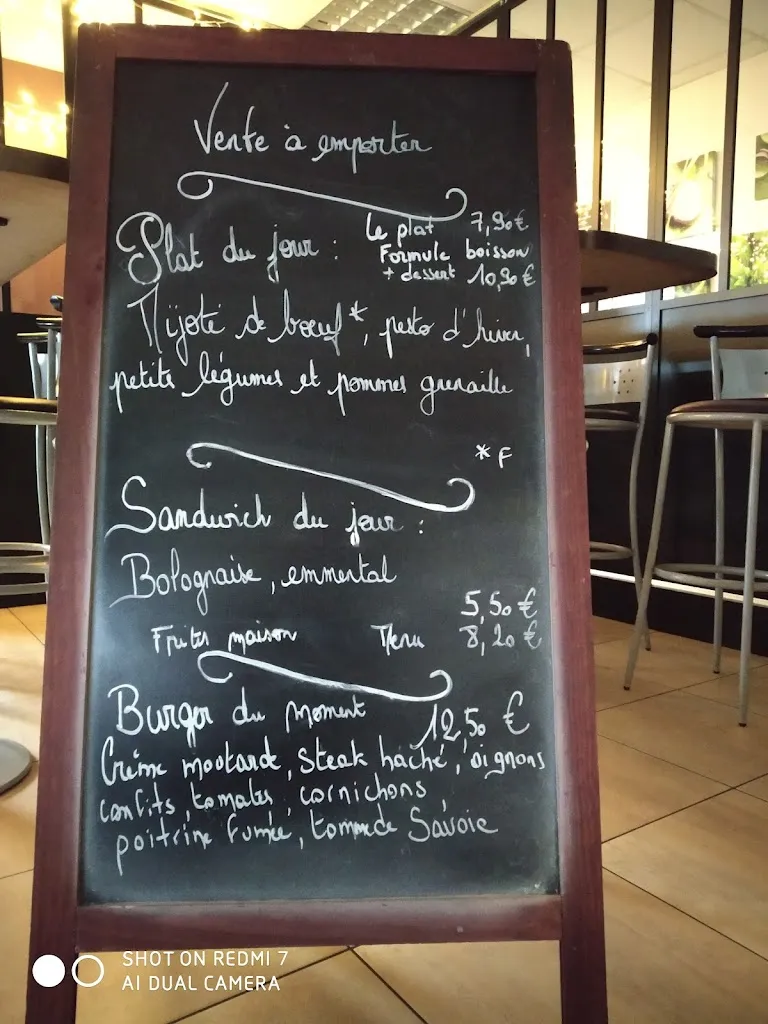 Vente à emporter
Le plat 7,90€
Plat du jour : Formule boisson
+ dessert 10,90€
Mijoté de bœuf*, pesto d'hiver,
petits légumes et pommes grenaille
* F
Sandwich du jour :
Bolognaise, emmental
5,50 €
Frites maison Menu 8,20 €
Burger du moment 12,50 €
Crème moutarde, steak haché, oignons
confits, tomates, cornichons,
poitrine fumée, tomme de Savoie
SHOT ON REDMI 7
AI DUAL CAMERA